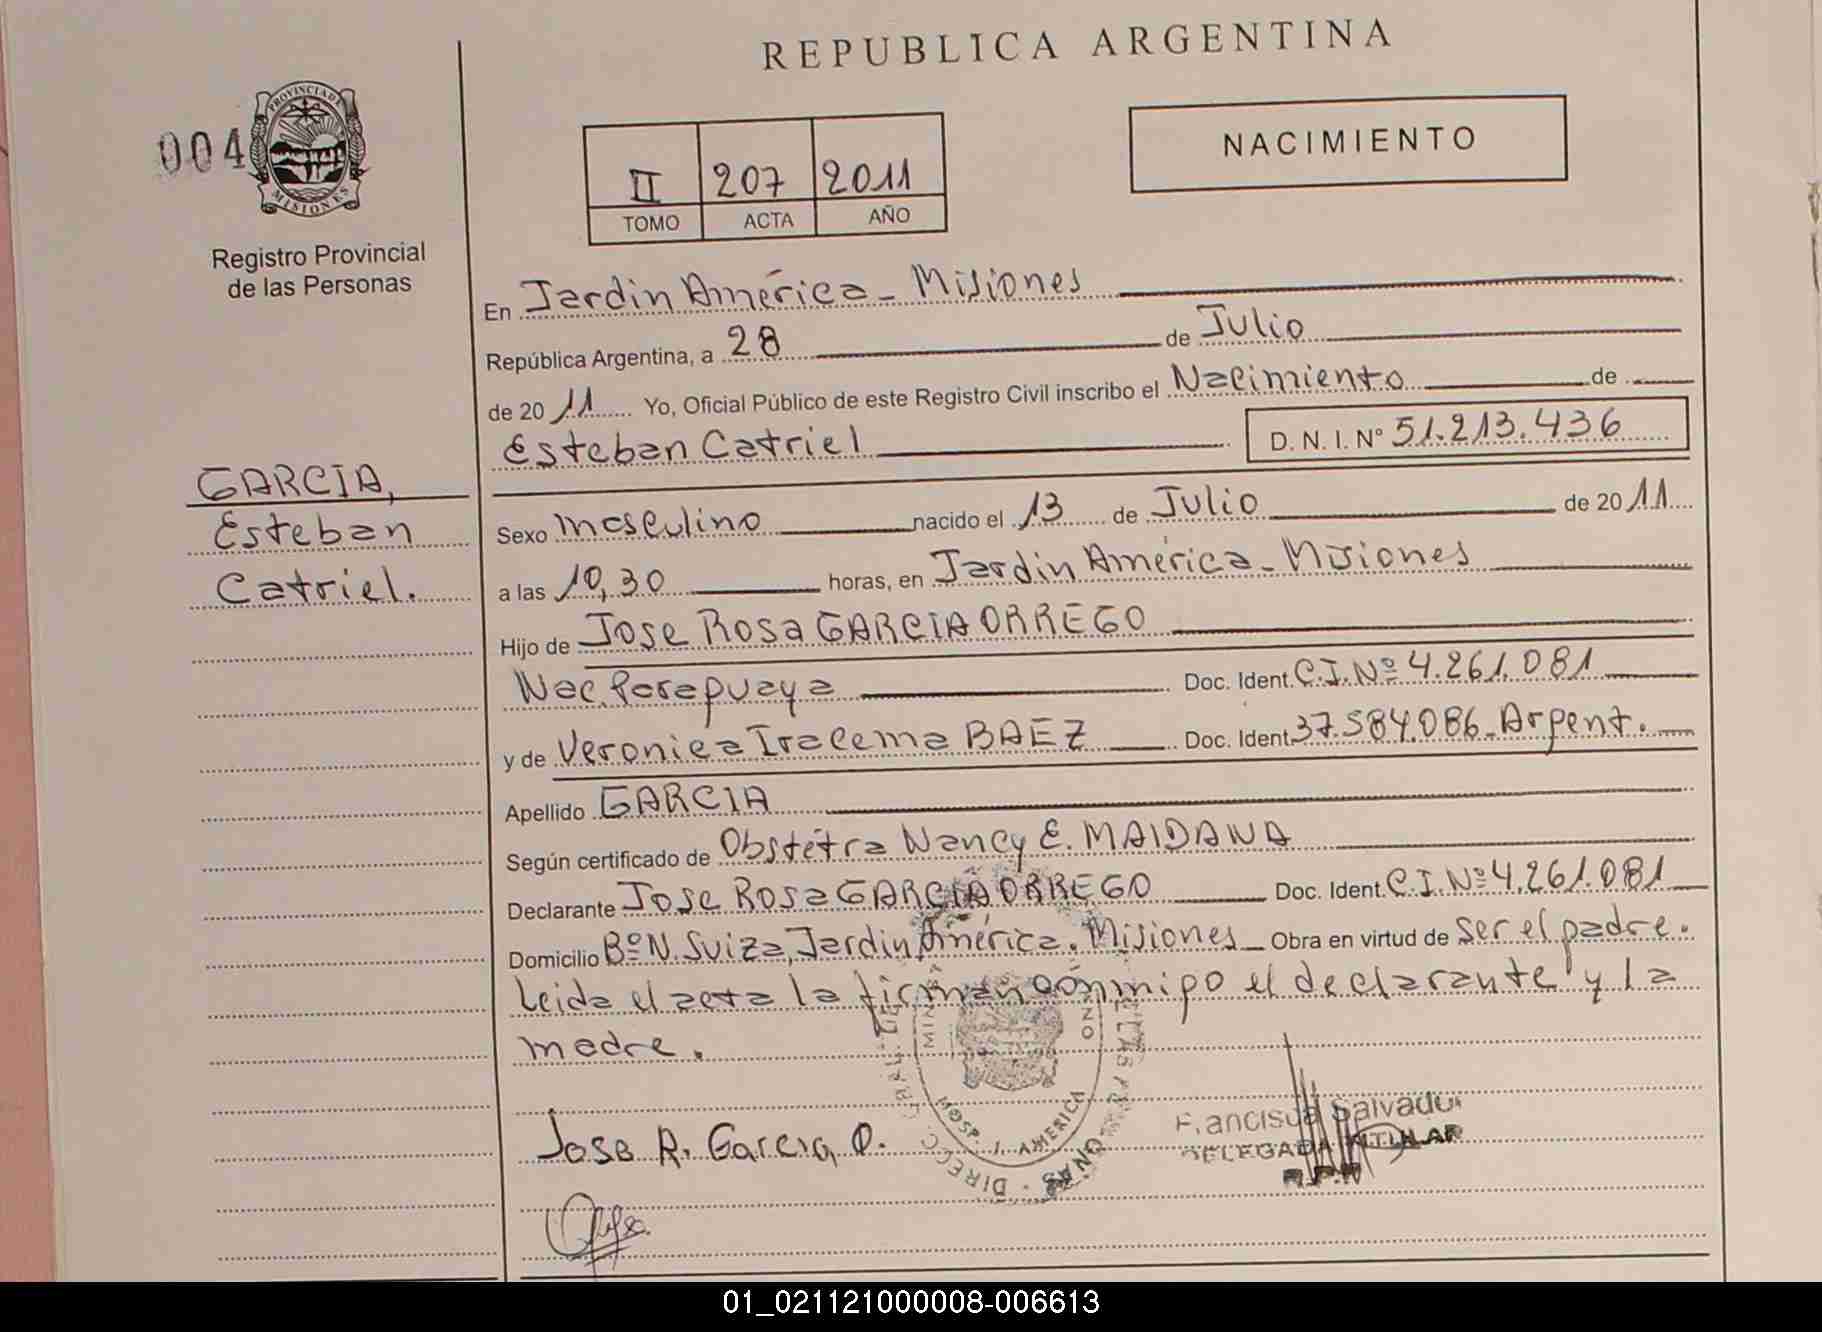 REPUBLICA ARGENTINA
004
PROVINCIA DE
MISIONES
NACIMIENTO
II 207 2011
TOMO ACTA AÑO
Registro Provincial
de las Personas
En Jardin América - Misiones
República Argentina, a 28 de Julio
de 20 11 Yo, Oficial Público de este Registro Civil inscribo el Nacimiento de
Esteban Catriel D. N. I. Nº 51.213.436
GARCIA,
Esteban
Catriel.
Sexo masculino nacido el 13 de Julio de 20 11
a las 10,30 horas, en Jardin América - Misiones
Hijo de Jose Rosa GARCIA ORREGO
Nac. Paraguaya Doc. Ident. C.I. Nº 4.261.081
y de Veronica Iracema BAEZ Doc. Ident. 37.584.086 - Argent.
Apellido GARCIA
Según certificado de Obstétra Nancy E. MAIDANA
Declarante Jose Rosa GARCIA ORREGO Doc. Ident. C.I. Nº 4.261.081
Domicilio Bº N. Suiza, Jardin América. Misiones Obra en virtud de ser el padre.
Leida el acta la firman conmigo el declarante y la
madre.
HOSP. J. AMERICA
DIRECC.
Jose R. Garcia O.
Francisca Salvador
DELEGADA TITULAR
R.P.P.
01_021121000008-006613